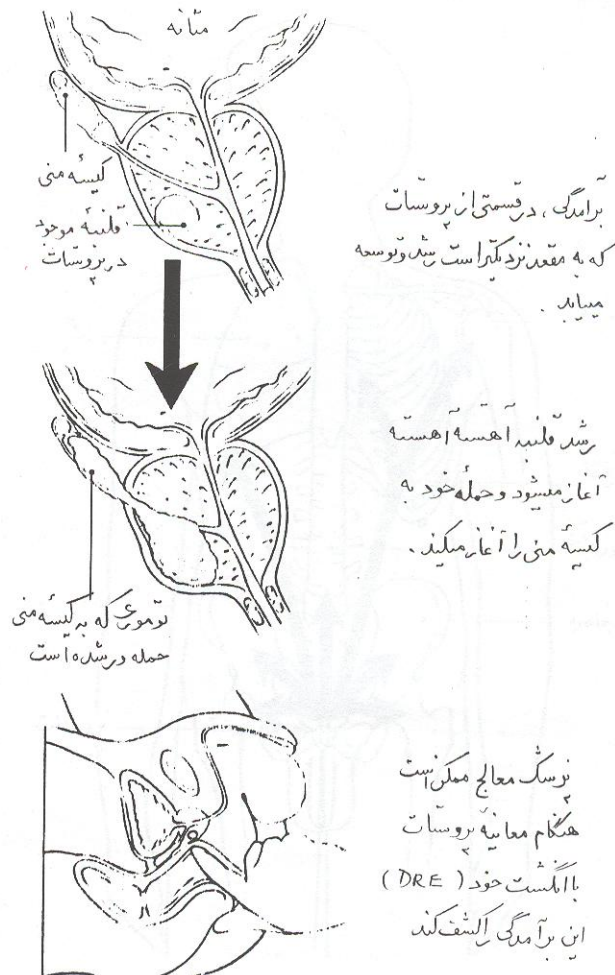 مثانه
کیسهٔ منی
قلنبه موجود
در پروستات
برآمدگی، در قسمتی از پروستات
که به مقعد نزدیکتر است رشد و توسعه
مییابد.
رشد قلنبه آهسته آهسته
آغاز میشود و حملهٔ خود به
کیسهٔ منی را آغاز میکند.
توموری که به کیسه منی
حمله ور شده است
پزشک معالج ممکن است
هنگام معاینهٔ پروستات
با انگشت خود (DRE)
این برآمدگی را کشف کند